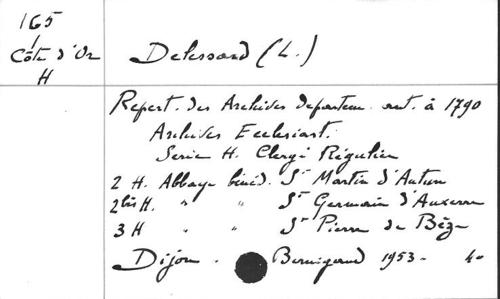 165
/
Côte d'Or
H
Delessard (L.)
Repert. des Archives départem. ant. à 1790
Archives Ecclesiast.
Serie H. Clergé Régulier
2 H. Abbaye bénéd. St Martin d'Autun
2bis H. " " St Germain d'Auxerre
3 H " " St Pierre de Bèze
Dijon. Bernigaud 1953 - 4o